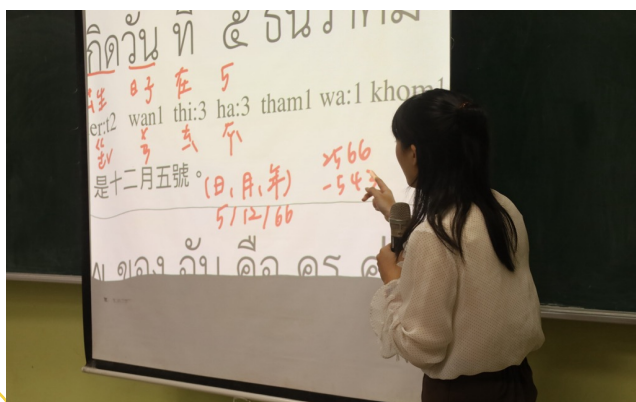 กิดวัน ที่ ๕ ธันวาคม
出生 日子 在 5
er:t2 wan1 thi:3 ha:3 tham1 wa:1 khom1
是十二月五號。(日、月、年)
5/12/66
2566
-543
ของ ฉัน คือ คร